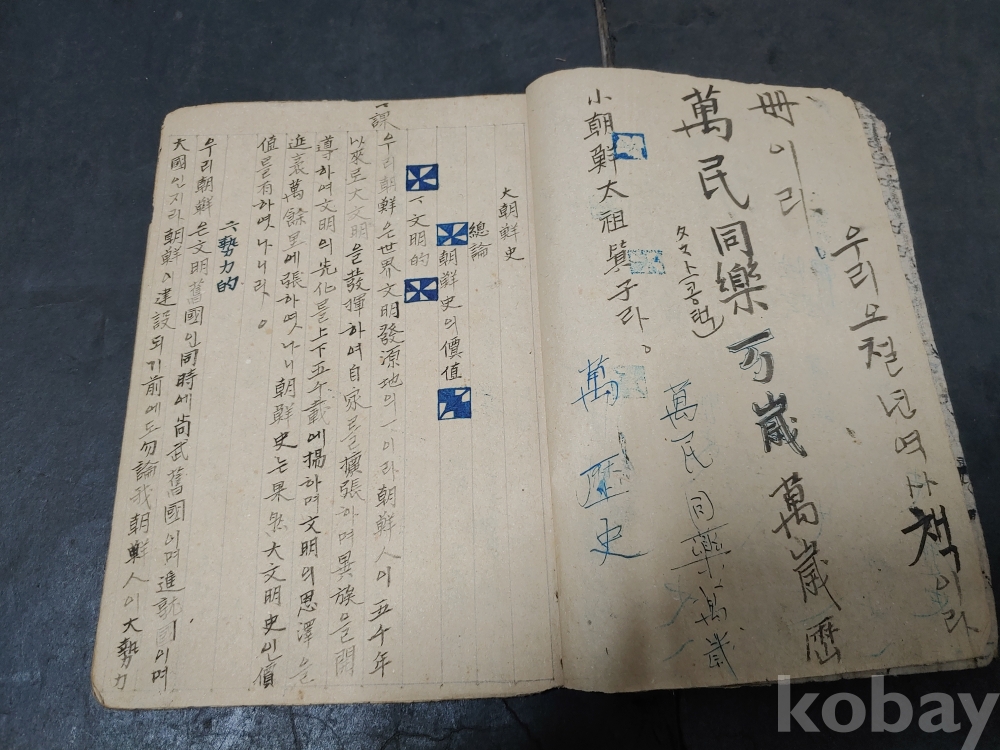 우리오천년여사책이라
冊이라
萬民同樂万歲萬歲歷
萬民同樂萬歲
小朝鮮太祖箕子라。
萬历史
大朝鮮史
總論
朝鮮史의價值
一文明的
一課
우리朝鮮은世界文明發源地의一이라朝鮮人이五千年
以來로大文明을發揮하여自家를擴張하며異族을開
導하여文明의先化를上下五千載에揚하며文明의恩澤을
延袤萬餘里에張하엿나니朝鮮史는果然大文明史인價
値를有하엿나니라。
二勢力的
우리朝鮮은文明舊國인同時에尙武舊國이며進就國이며
大國인지라朝鮮이建設되기前에도勿論我朝鮮人이大勢力
kobay